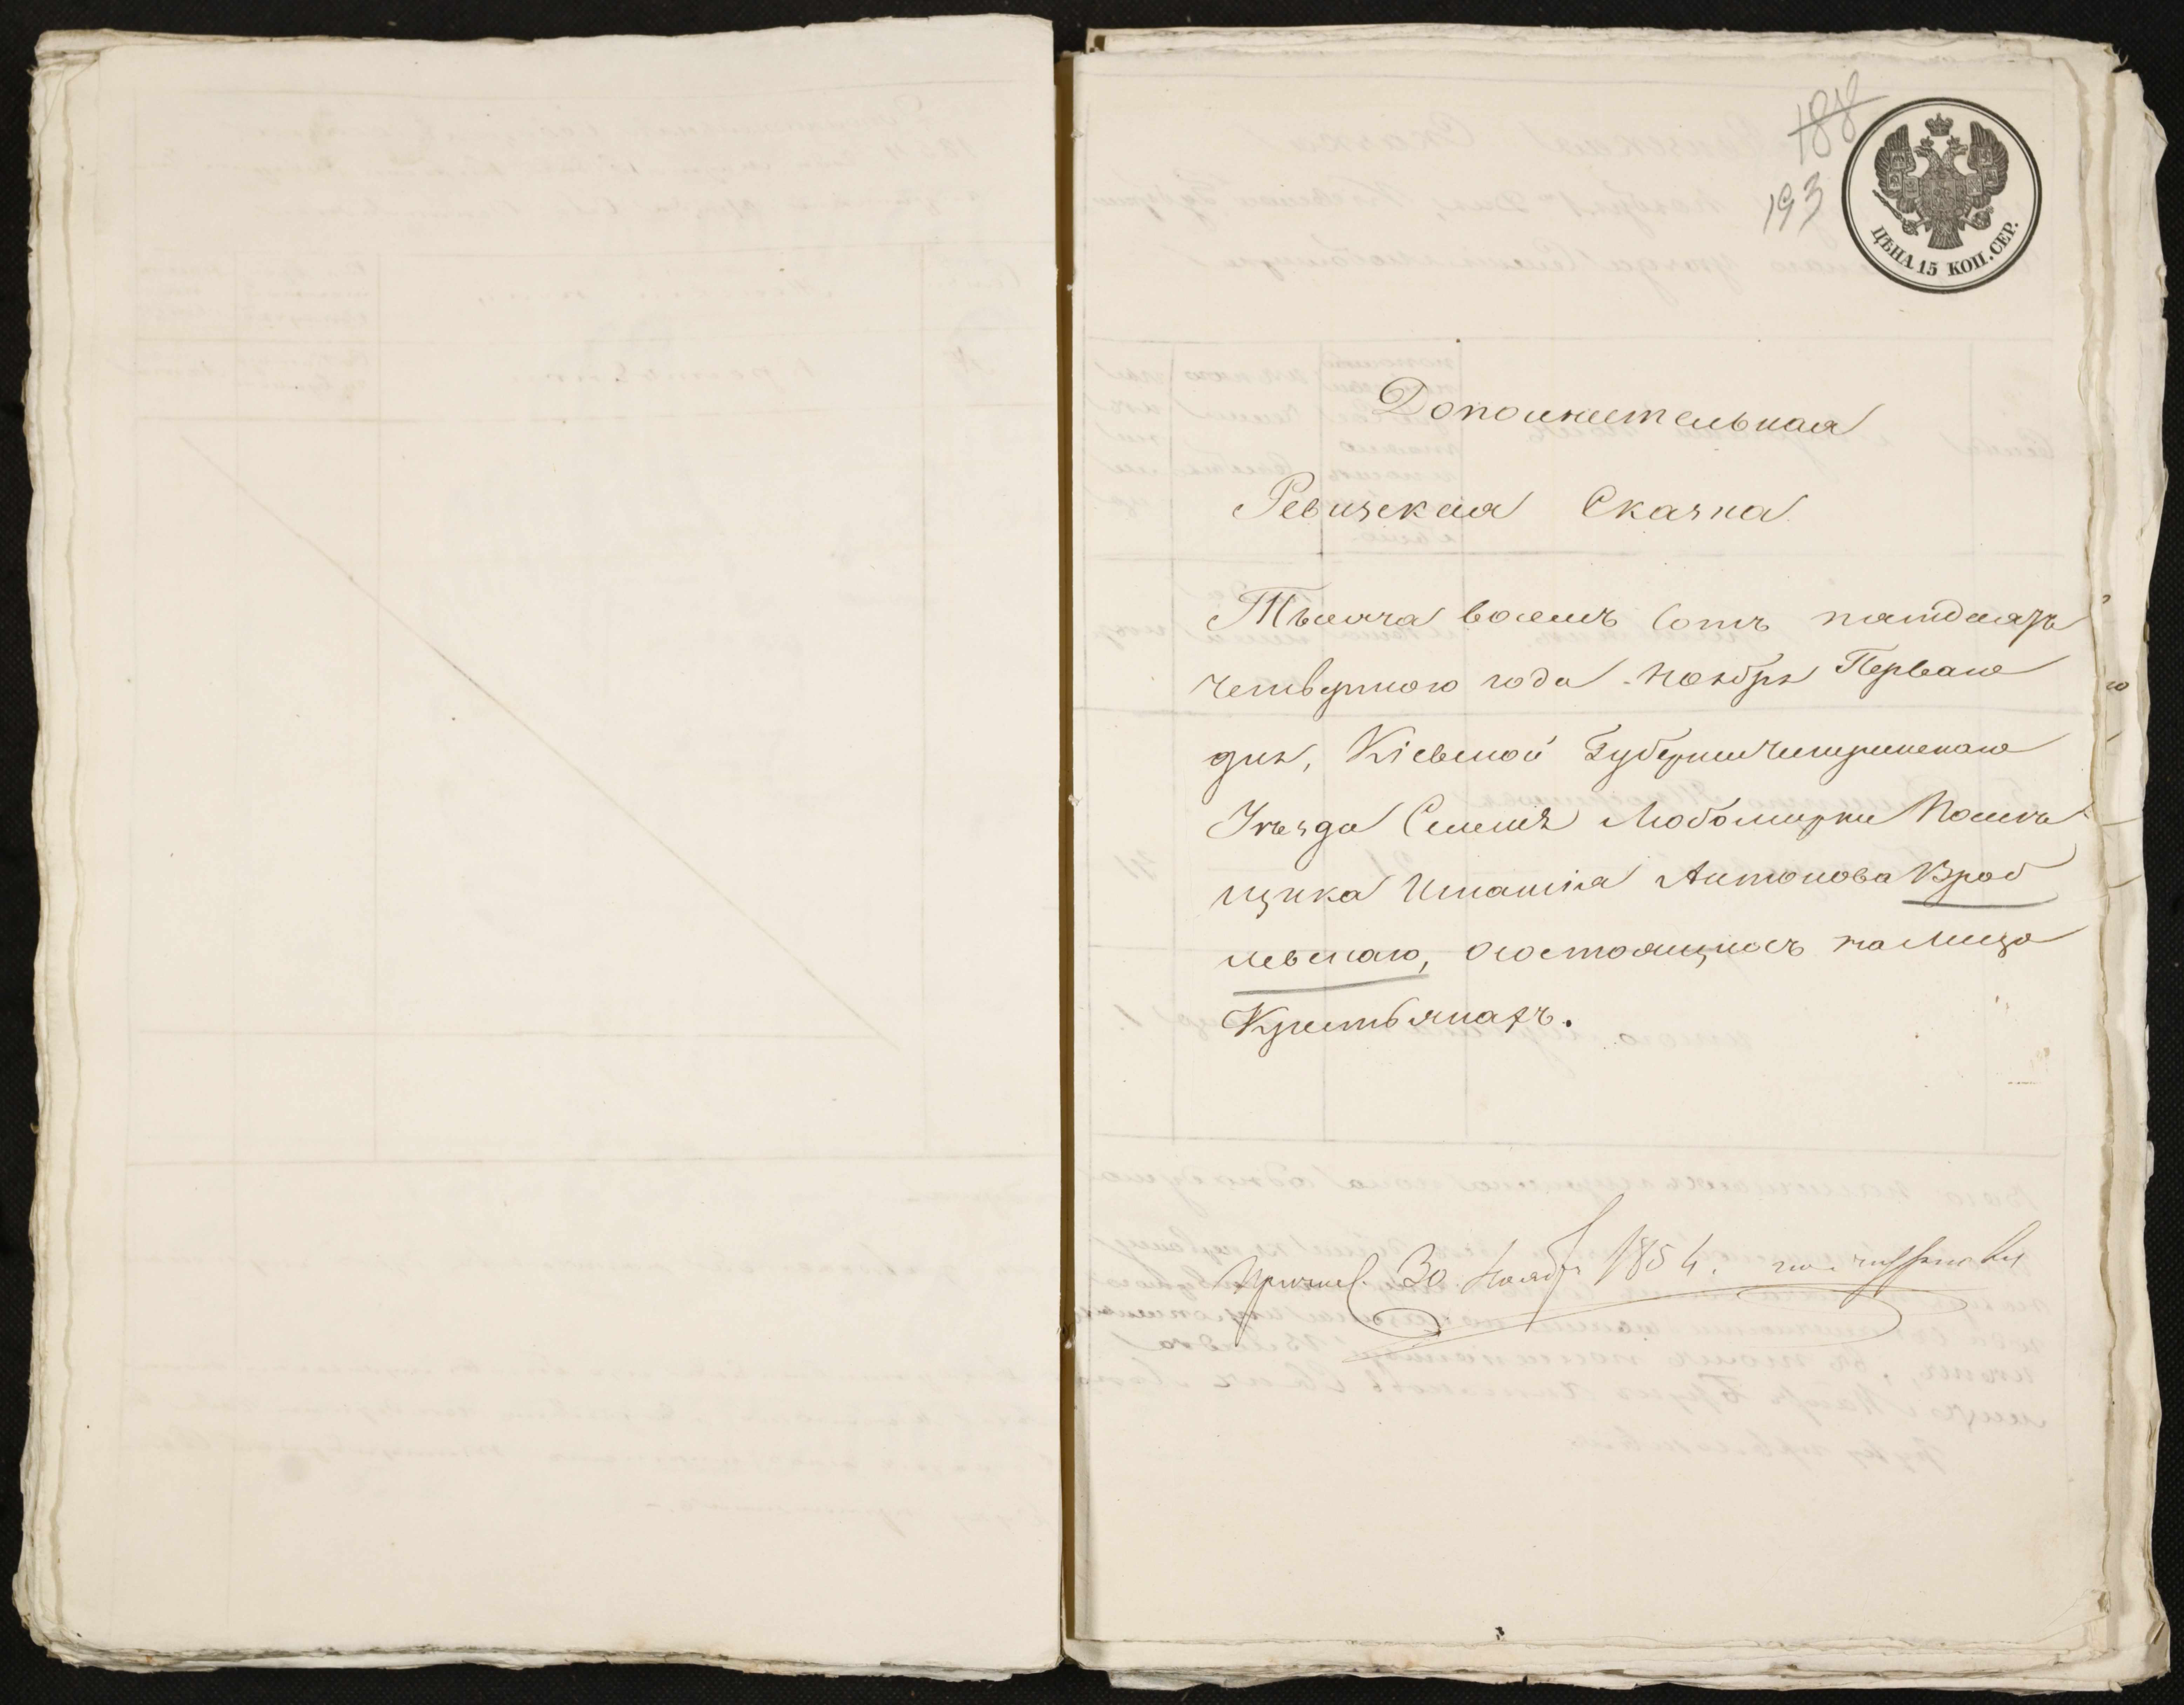 188
193
ЦѢНА 15 КОП. СЕР.
Дополнительная
Ревизская Сказка
Тысяча восемь сотъ пятдесятъ
четвертого года Ноября Перваго
дня, Кіевской Губерніи Чигиринскаго
Уѣзда Селенія Любомирки Помѣ
щика Игнатія Антонова Вроб
левскаго, о состоящихъ на лицо
Крестьянахъ.
30 Нояб 1854.